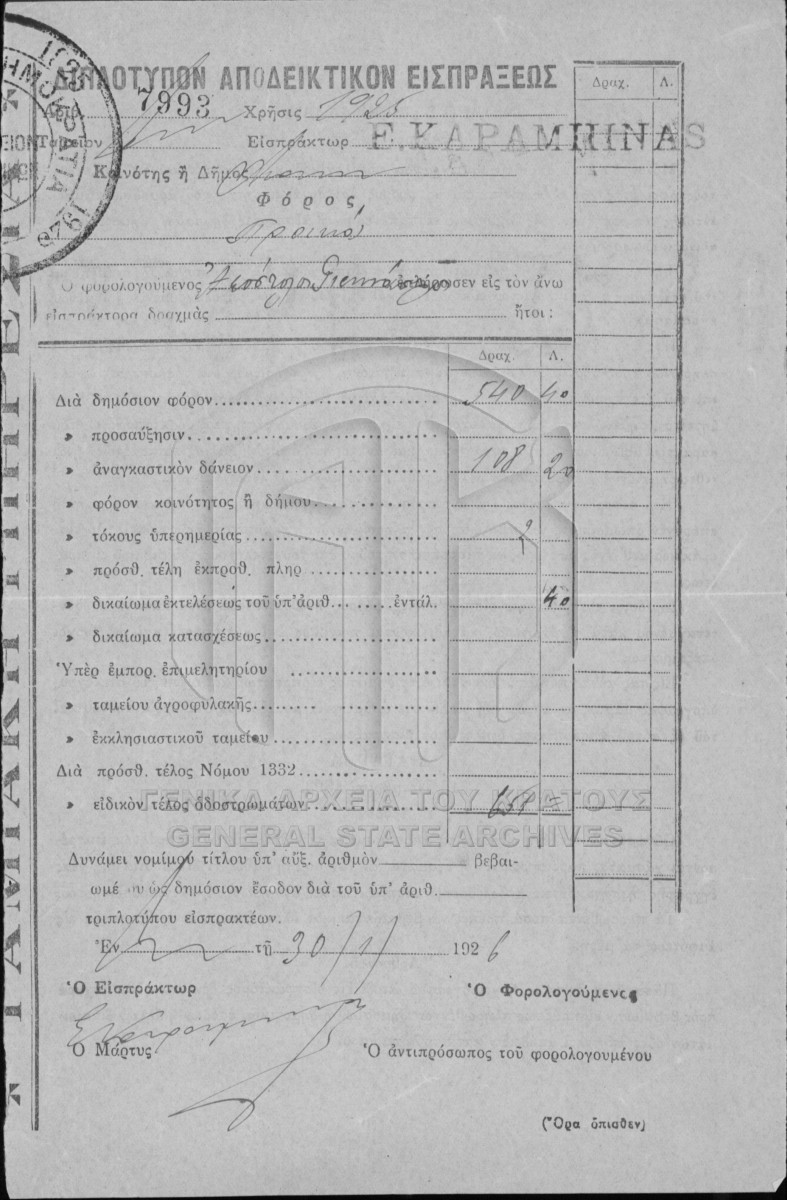 ΔΙΠΛΟΤΥΠΟΝ ΑΠΟΔΕΙΚΤΙΚΟΝ ΕΙΣΠΡΑΞΕΩΣ
Ἀριθ. 7993 Χρῆσις 1925
Ταμεῖον Εἰσπράκτωρ Ε. ΚΑΡΑΜΠΙΝΑS
Κοινότης ἢ Δῆμος
Φόρος
Προικὸ
Ὁ φορολογούμενος ἐπλήρωσεν εἰς τὸν ἄνω
εἰσπράκτορα δραχμὰς ἤτοι :
Δραχ. Λ.
Δραχ. Λ.
Διὰ δημόσιον φόρον 540 40
» προσαύξησιν
» ἀναγκαστικὸν δάνειον 108 20
» φόρον κοινότητος ἢ δήμου
» τόκους ὑπερημερίας 9
» πρόσθ. τέλη ἐκπροθ. πληρ
» δικαίωμα ἐκτελέσεως τοῦ ὑπ' ἀριθ. ἐντάλ. 40
» δικαίωμα κατασχέσεως
Ὑπὲρ ἐμπορ. ἐπιμελητηρίου
» ταμείου ἀγροφυλακῆς
» ἐκκλησιαστικοῦ ταμείου
Διὰ πρόσθ. τέλος Νόμου 1332
» εἰδικὸν τέλος ὁδοστρωμάτων 658 =
ΓΕΝΙΚΑ ΑΡΧΕΙΑ ΤΟΥ ΚΡΑΤΟΥΣ
GENERAL STATE ARCHIVES
Δυνάμει νομίμου τίτλου ὑπ' αὔξ. ἀριθμὸν βεβαι-
ωμένου ὡς δημόσιον ἔσοδον διὰ τοῦ ὑπ' ἀριθ.
τριπλοτύπου εἰσπρακτέων.
Ἐν τῇ 30/1/ 1926
Ὁ Εἰσπράκτωρ Ὁ Φορολογούμενος
Ὁ Μάρτυς Ὁ ἀντιπρόσωπος τοῦ φορολογουμένου
(Ὅρα ὄπισθεν)